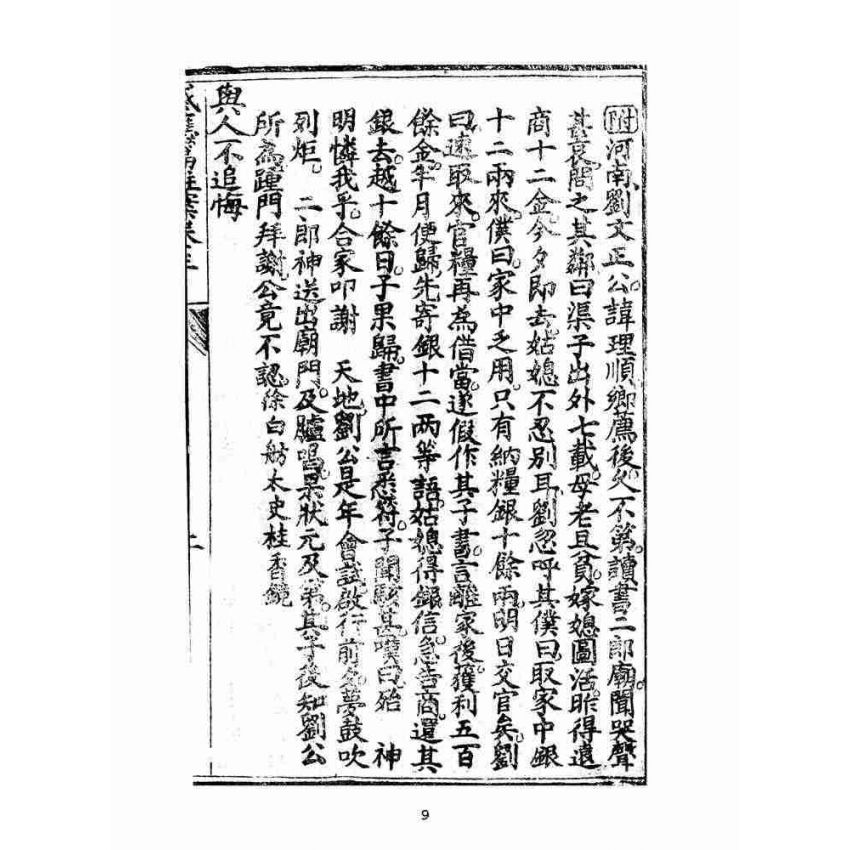 附河南劉文正公諱理順鄉薦後久不第讀書二郎廟聞哭聲
甚哀問之其鄰曰渠子出外七載母老且貧嫁媳圖活昨得遠
商十二金今夕即去姑媳不忍別耳劉忽呼其僕曰取家中銀
十二兩來僕曰家中乏用只有納糧銀十餘兩明日交官矣劉
曰速取來官糧再為借當遂假作其子書言離家後獲利五百
餘金半月便歸先寄銀十二两等語姑媳得銀信急告商還其
銀去越十餘日子果歸書中所言悉符子聞駭甚嘆曰殆 神
明憐我乎合家叩謝 天地劉公是年會試啟行前夕夢鼓吹
列炬 二郎神送出廟門及臚唱果狀元及第其子後知劉公
所為踵門拜謝公竟不認徐白舫太史桂香鏡
與人不追悔
二
9